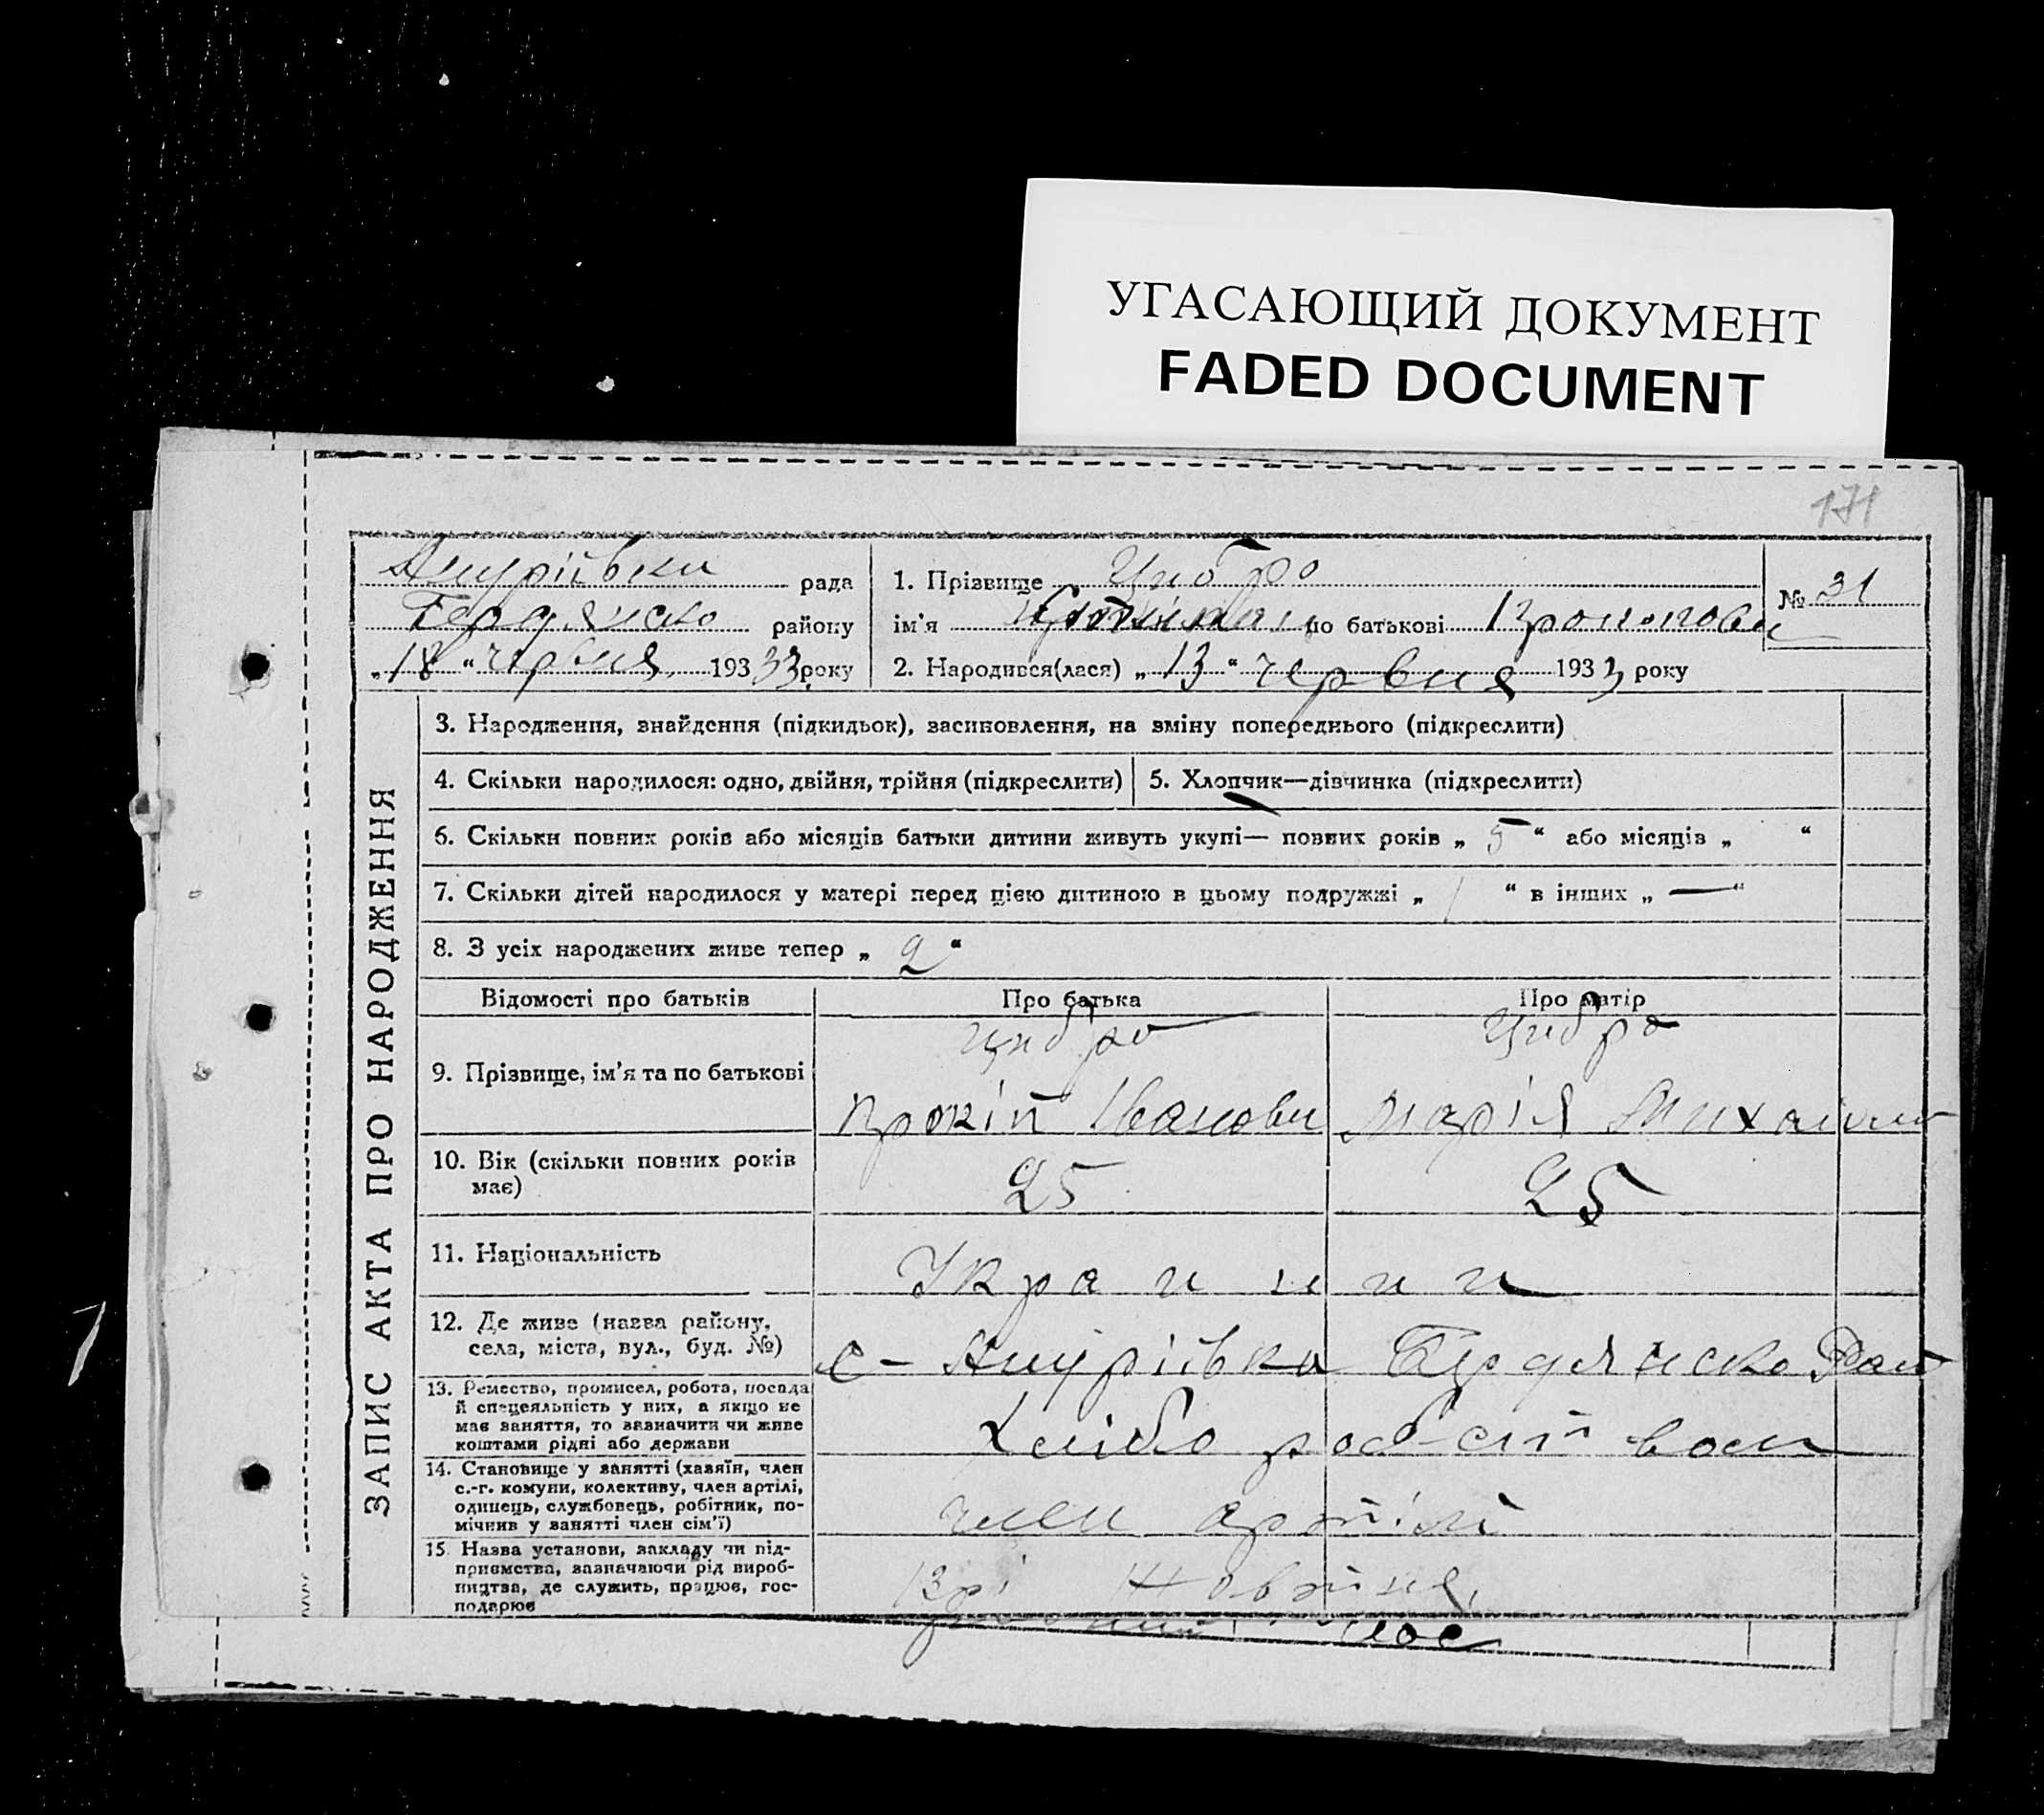 УГАСАЮЩИЙ ДОКУМЕНТ
FADED DOCUMENT
171
Ануріївки рада
Бердянсько району
„18“ червня 193 33 року
1. Прізвище Цибро
ім'я по батькові
№ 31
2. Народився(лася) „13“ червня 1933 року
ЗАПИС АКТА ПРО НАРОДЖЕННЯ
3. Народження, знайдення (підкидьок), засиновлення, на зміну попереднього (підкреслити)
4. Скільки народилося: одно, двійня, трійня (підкреслити)
5. Хлопчик—дівчинка (підкреслити)
6. Скільки повних років або місяців батьки дитини живуть укупі— повних років „5“ або місяців „ “
7. Скільки дітей народилося у матері перед цією дитиною в цьому подружжі „1“ в інших „—“
8. З усіх народжених живе тепер „2“
Відомості про батьків
Про батька
Про матір
9. Прізвище, ім'я та по батькові
Цибро
Прокіп Іванови
Цибро
Марія
10. Вік (скільки повних років
має)
25
25
11. Національність
Украинии
12. Де живе (назва району,
села, міста, вул., буд. №)
с- Ануріївка Бердянско Рай
13. Ремество, промисел, робота, посада
й спецеяльність у них, а якщо не
має заняття, то зазначити чи живе
коштами рідні або держави
Хлібороб
14. Становище у занятті (хазяїн, член
с.-г. комуни, колективу, член артілі,
одинець, службовець, робітник, по-
мічник у занятті член сім'ї)
член артілі
15. Назва установи, закладу чи під-
приємства, зазначаючи рід вироб-
ництва, де служить, працює, гос-
подарює
Жовтня